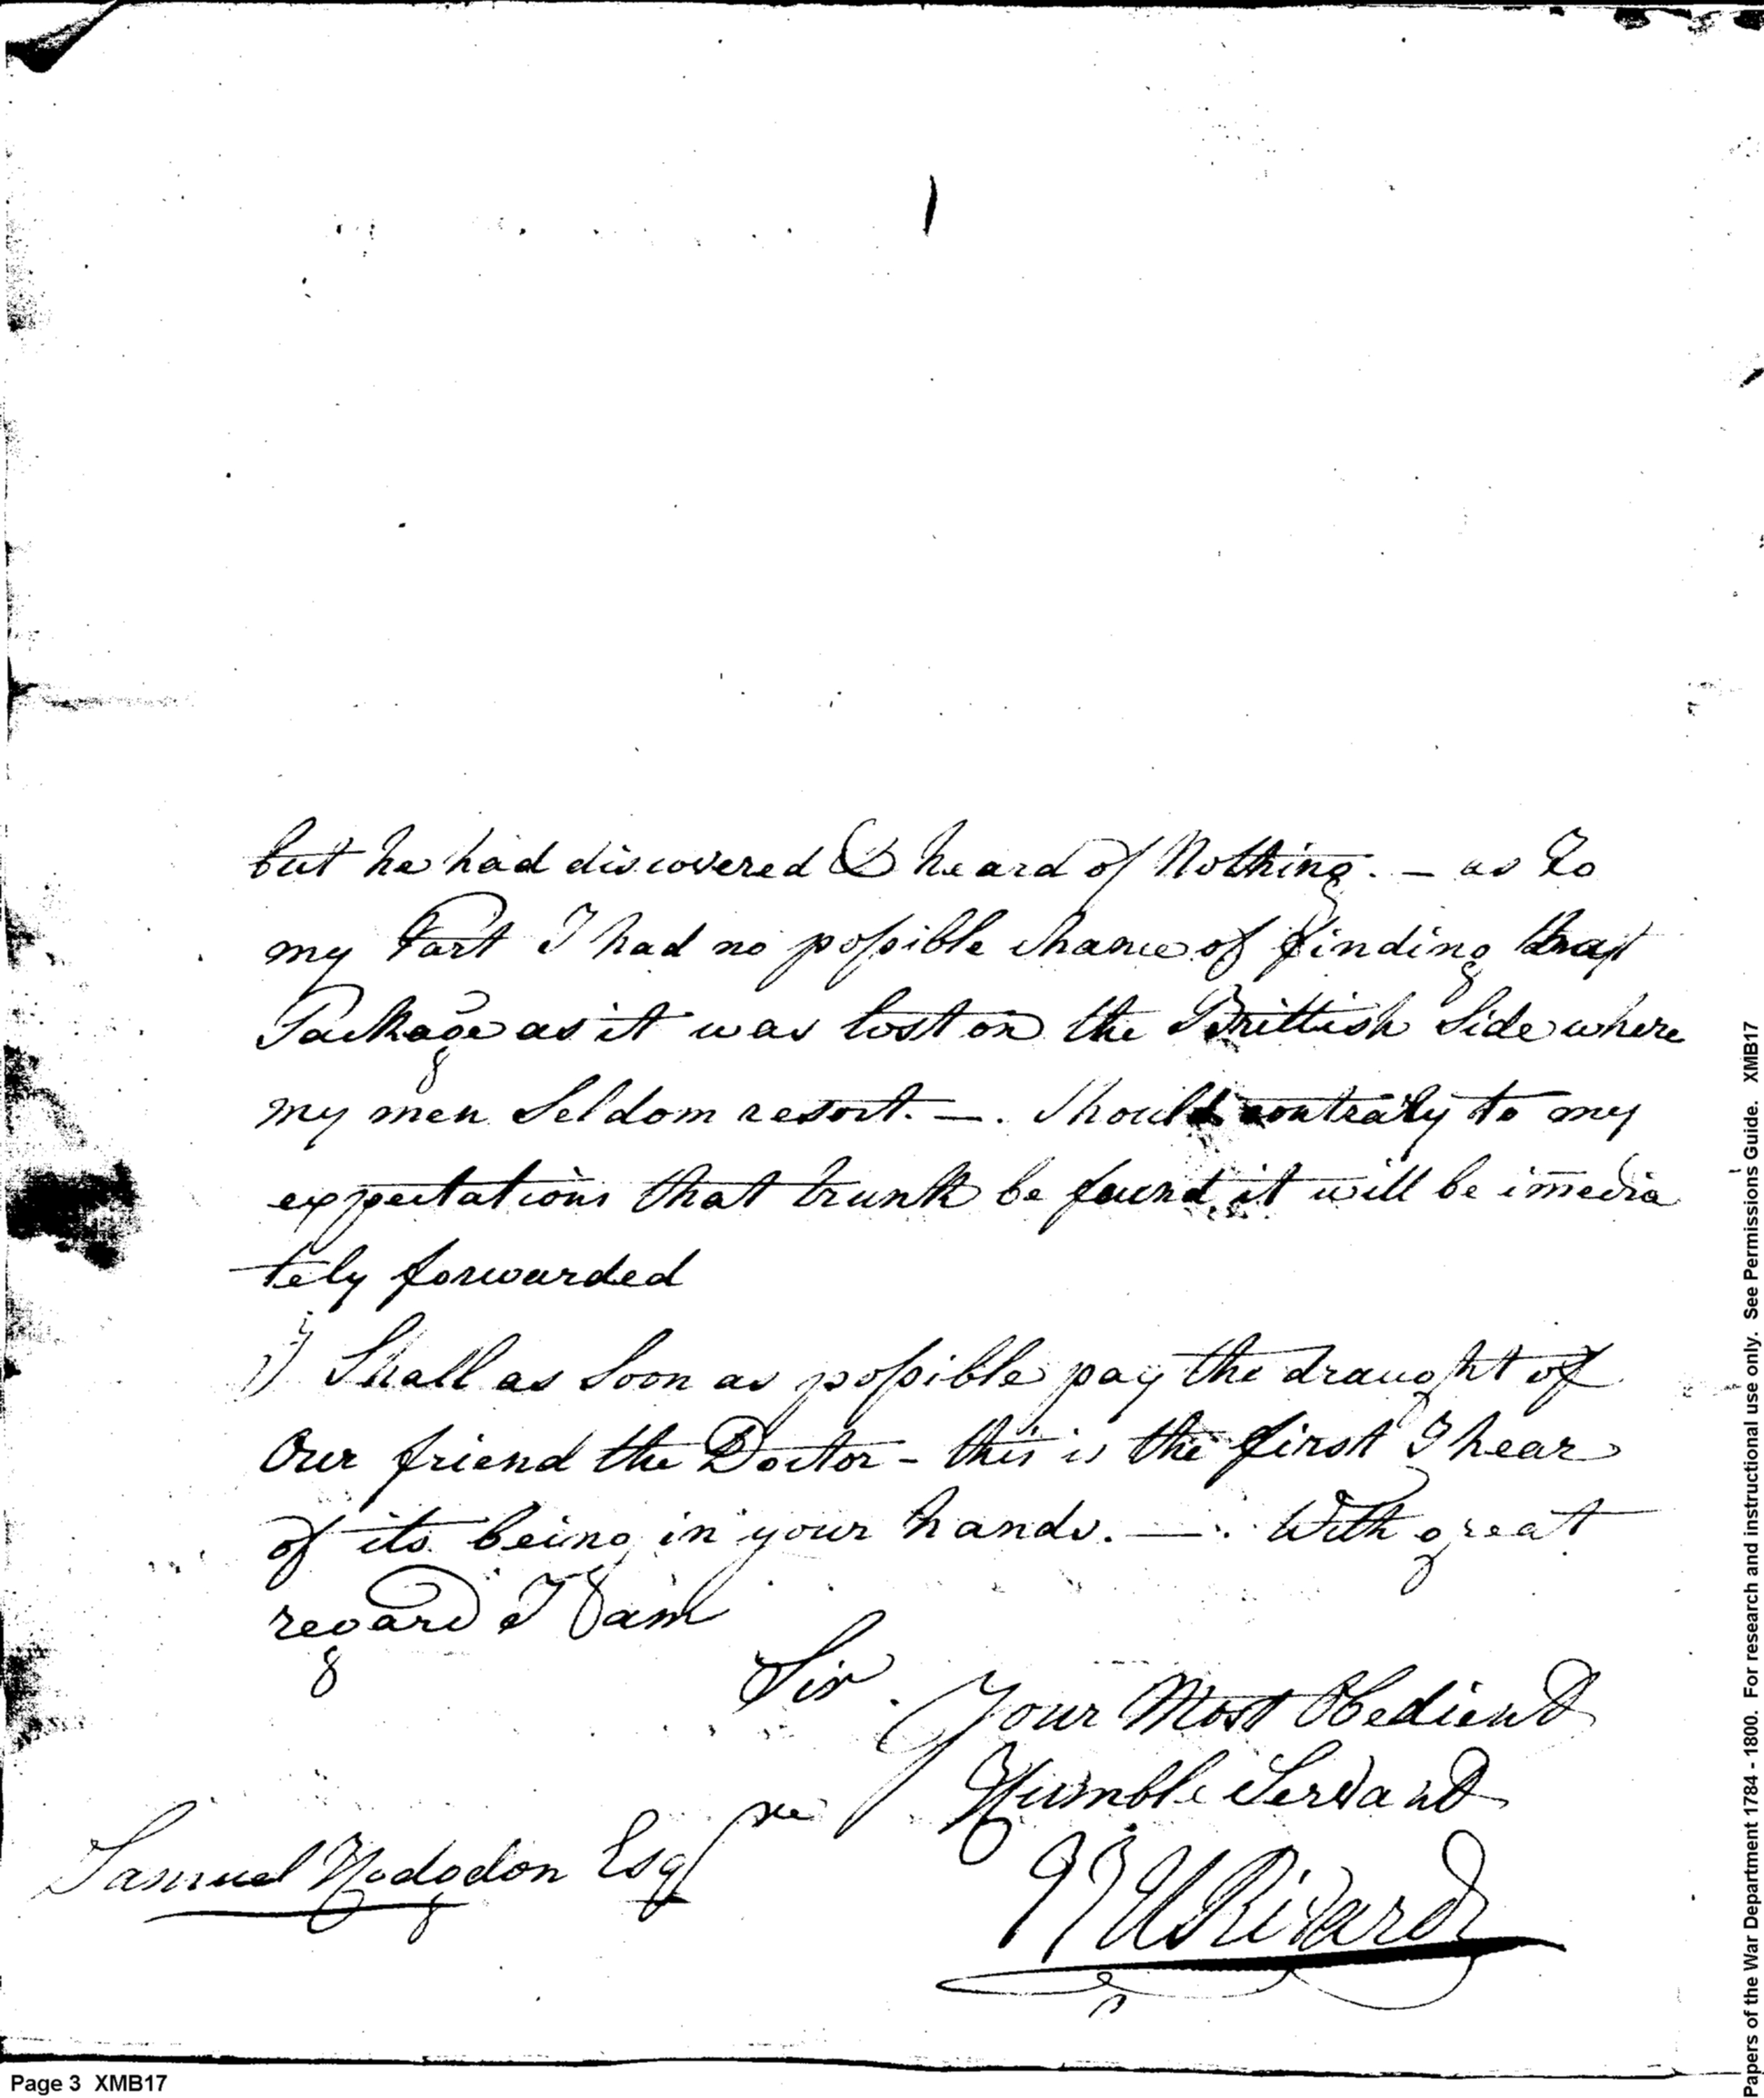 but he had discovered & heard of Nothing. – as to
my Part I had no possible chance of finding that
Package as it was lost on the Brittish Side where
my men Seldom resort. –. Should contrary to my
expectations that trunk be found it will be imedia
tely forwarded
I Shall as Soon as possible pay the draught of
Our friend the Doctor – this is the first I hear
of its being in your hands. –. With great
regard I am
Sir.
Your Most Obedient
Humble Servant
Samuel Hodgdon Esqre
JJU Rivardi
Page 3 XMB17
Papers of the War Department 1784 - 1800. For research and instructional use only. See Permissions Guide. XMB17